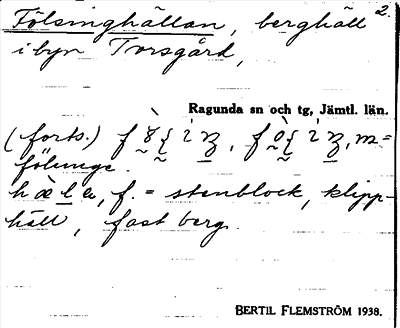 Fölsinghällan, berghäll 2.
i byn Torsgård,
Ragunda sn och tg, Jämtl. län.
(forts.) m=
fölunge.
f. = stenblock, klipp-
häll, fast berg.
BERTIL FLEMSTRÖM 1938.